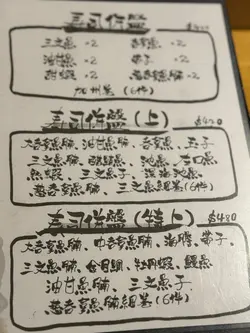 壽司併盤
三文魚 ×2 吞拿魚 ×2
油甘魚 ×2 帶子 ×2
甜蝦 ×2 ×2
加州卷 (6件)
壽司併盤 (上) $420
大吞拿魚腩、油甘魚腩、吞拿魚、玉子
三文魚腩、池魚、右口魚
熊蝦、三文魚子、深海池魚
葱吞拿魚腩細卷 (6件)
壽司併盤 (特上) $480
大吞拿魚腩、中吞拿魚腩、海膽、帶子、
三文魚腩、金目鯛、牡丹蝦、鰻魚
油甘魚腩、三文魚子、
葱吞拿魚腩細卷 (6件)